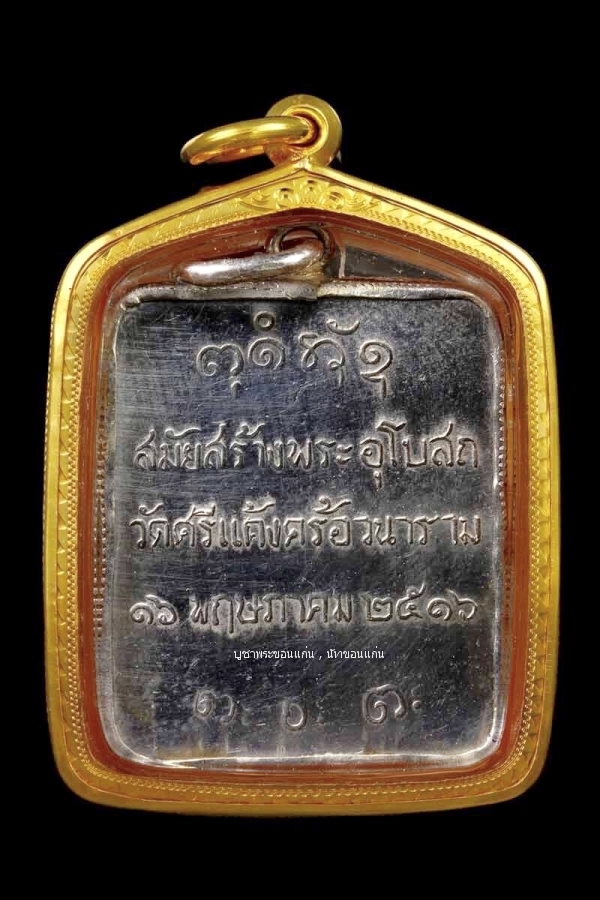 สมัยสร้างพระอุโบสถ
วัดศรีแก้งคร้อวนาราม
๑๖ พฤษภาคม ๒๕๑๖
บูชาพระขอนแก่น , นัทขอนแก่น